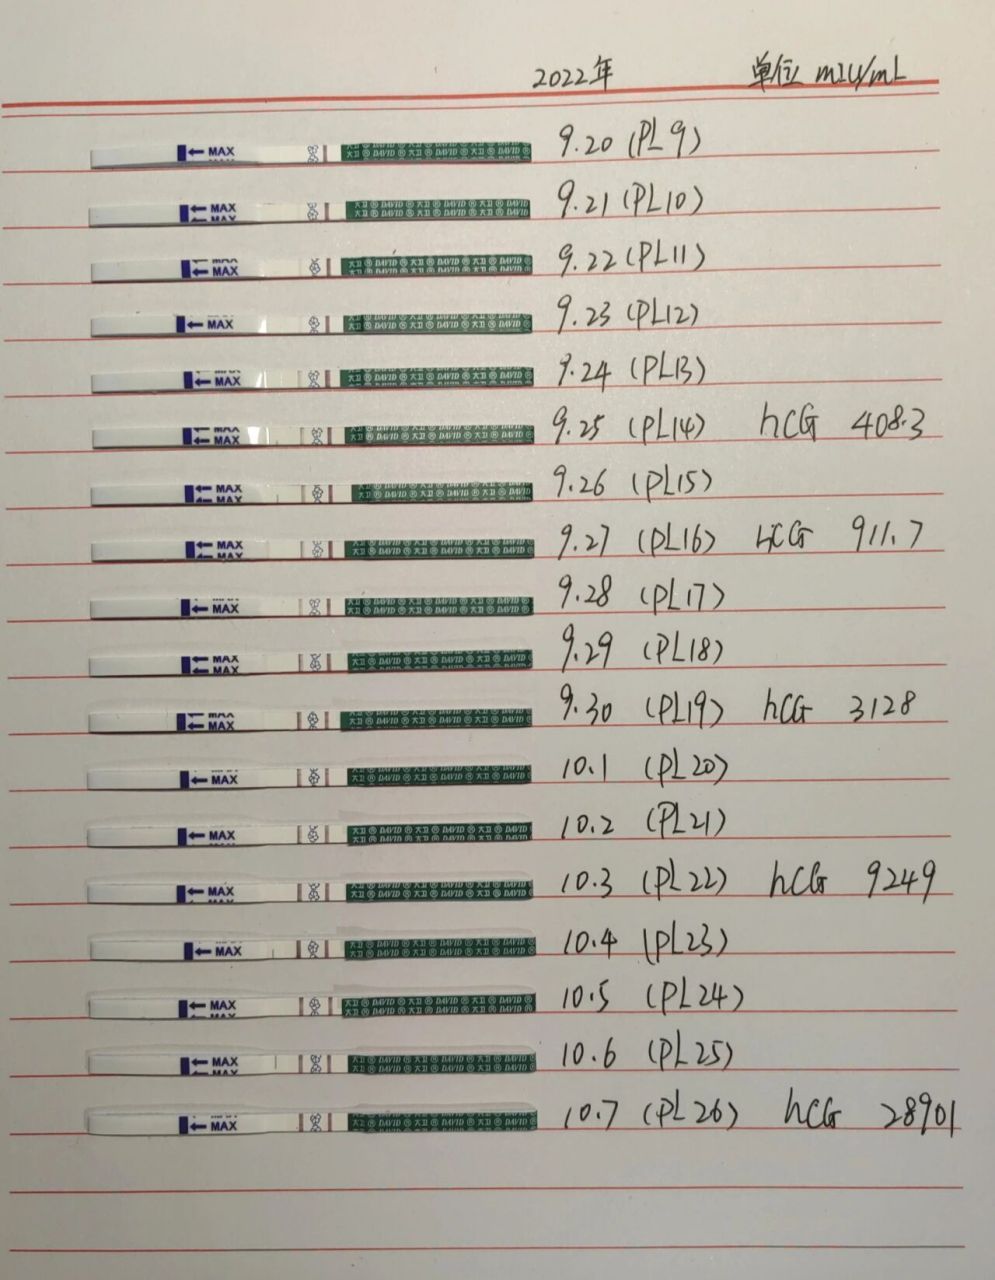 2022年 单位 mIU/mL
MAX 大卫 DAVID 9.20 (PL9)
MAX 大卫 DAVID 9.21 (PL10)
MAX 大卫 DAVID 9.22 (PL11)
MAX 大卫 DAVID 9.23 (PL12)
MAX 大卫 DAVID 9.24 (PL13)
MAX 大卫 DAVID 9.25 (PL14) hCG 408.3
MAX 大卫 DAVID 9.26 (PL15)
MAX 大卫 DAVID 9.27 (PL16) hCG 911.7
MAX 大卫 DAVID 9.28 (PL17)
MAX 大卫 DAVID 9.29 (PL18)
MAX 大卫 DAVID 9.30 (PL19) hCG 3128
MAX 大卫 DAVID 10.1 (PL20)
MAX 大卫 DAVID 10.2 (PL21)
MAX 大卫 DAVID 10.3 (PL22) hCG 9249
MAX 大卫 DAVID 10.4 (PL23)
MAX 大卫 DAVID 10.5 (PL24)
MAX 大卫 DAVID 10.6 (PL25)
MAX 大卫 DAVID 10.7 (PL26) hCG 28901